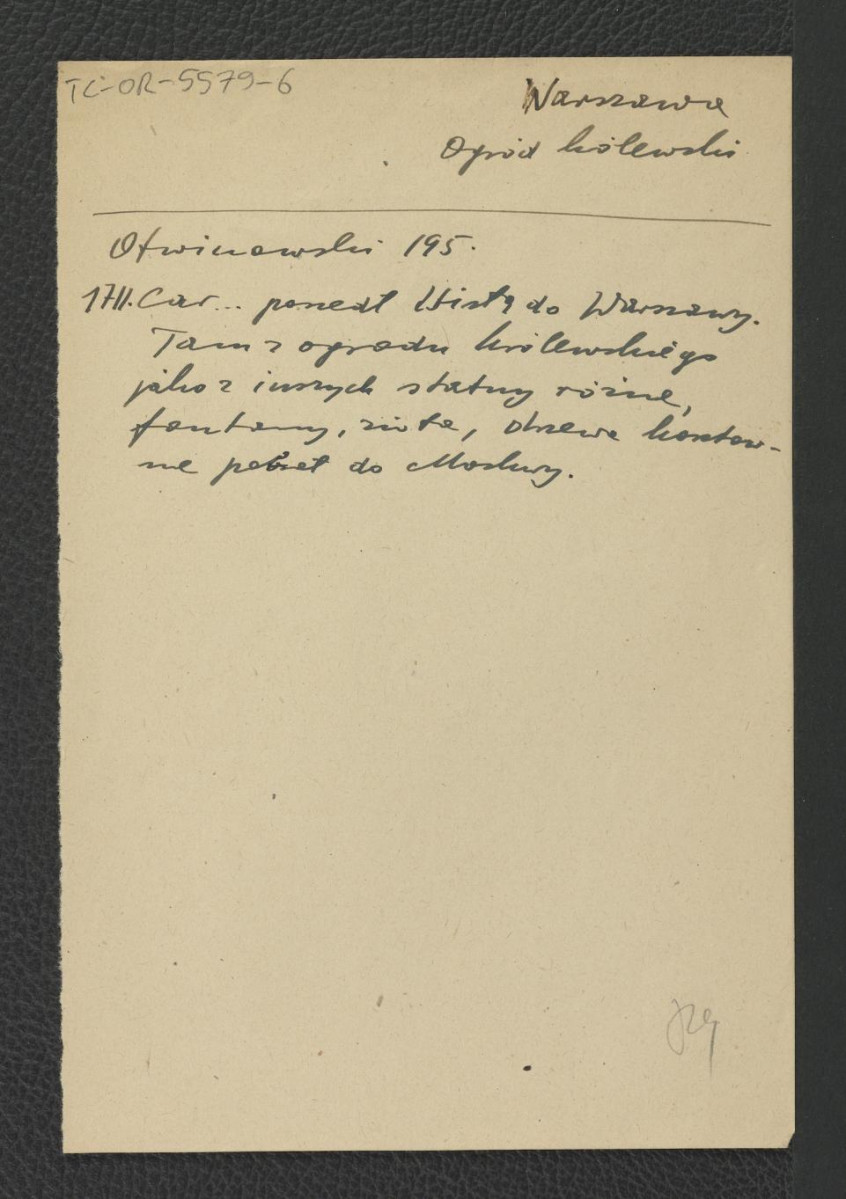 TC-OR-5579-6
Warszawa
Ogród królewski
Otwinowski 195.
1711. Car... poszedł Wisłą do Warszawy.
Tam z ogrodu królewskiego
jako z inszych statuy różne,
fontanny, zioła, drzewa kosztow-
ne pobrał do Moskwy.